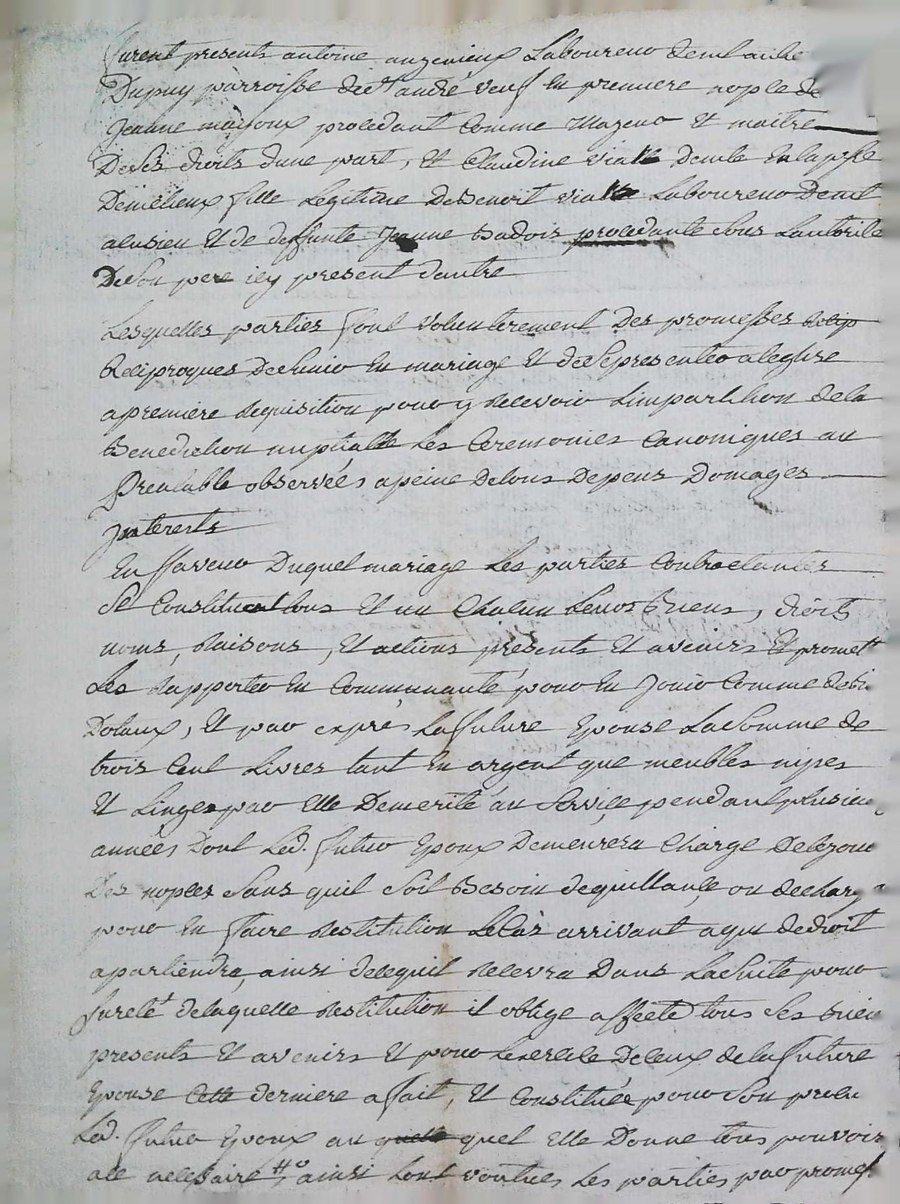 furent presents antoine augenieux Laboureur demt au lieu
Dupuy parroisse de st andré veuf en premiere nopce de
Jeanne mayoux procedant comme Mageur et maitre
De ses droits dune part, et Claudine vialle Demte en la psse
Demélieux fille Légitime De Benoit vialle Laboureur Demt
audit lieu et de deffunte Jeanne Badois procedante sous Lautorité
De son pere icy present dautre
Lesquelles parties font volontairement Des promesses
Reciproques De sunir en mariage et de se presenter a leglise
a premiere Requisition pour y Recevoir Limpartition de la
Benediction nuptialle Les Ceremonies Canoniques au
Préalable observées a peine de tous Depens Domages
Jnterests
En ffaveur Duquel mariage Les parties Contractantes
se Constituent tous et un Chacun Leurs Biens, droits
noms, Raisons, et actions présents et avenirs et promett
Les Rapporter en Communauté pour en Jouir comme de biens
Dotaux, et par exprès La future Epouse La Somme de
trois Cent Livres tant en argent que meubles nipes
et Linges par elle Demerité au Service pendant plusieurs
années Dont Led. futur Epoux Demeurera Chargé De le jour
Des nopces sans quil soit Besoin de quittance ou decharge
pour en ffaire Restitution Le Cas arrivant a qui de droit
apartiendra, ainsi de ce quil Recevra Dans La suite pour
sureté de laquelle Restitution il oblige affecte tous ses biens
presents et avenirs et pour Lexercice De ceux de la ffuture
Epouse Cette derniere a fait, et Constitué pour son procu
Led. ffutur Epoux au quel elle Donne tous pouvoirs
a ce necessaire # ainsi Lont voulu Les parties par promes